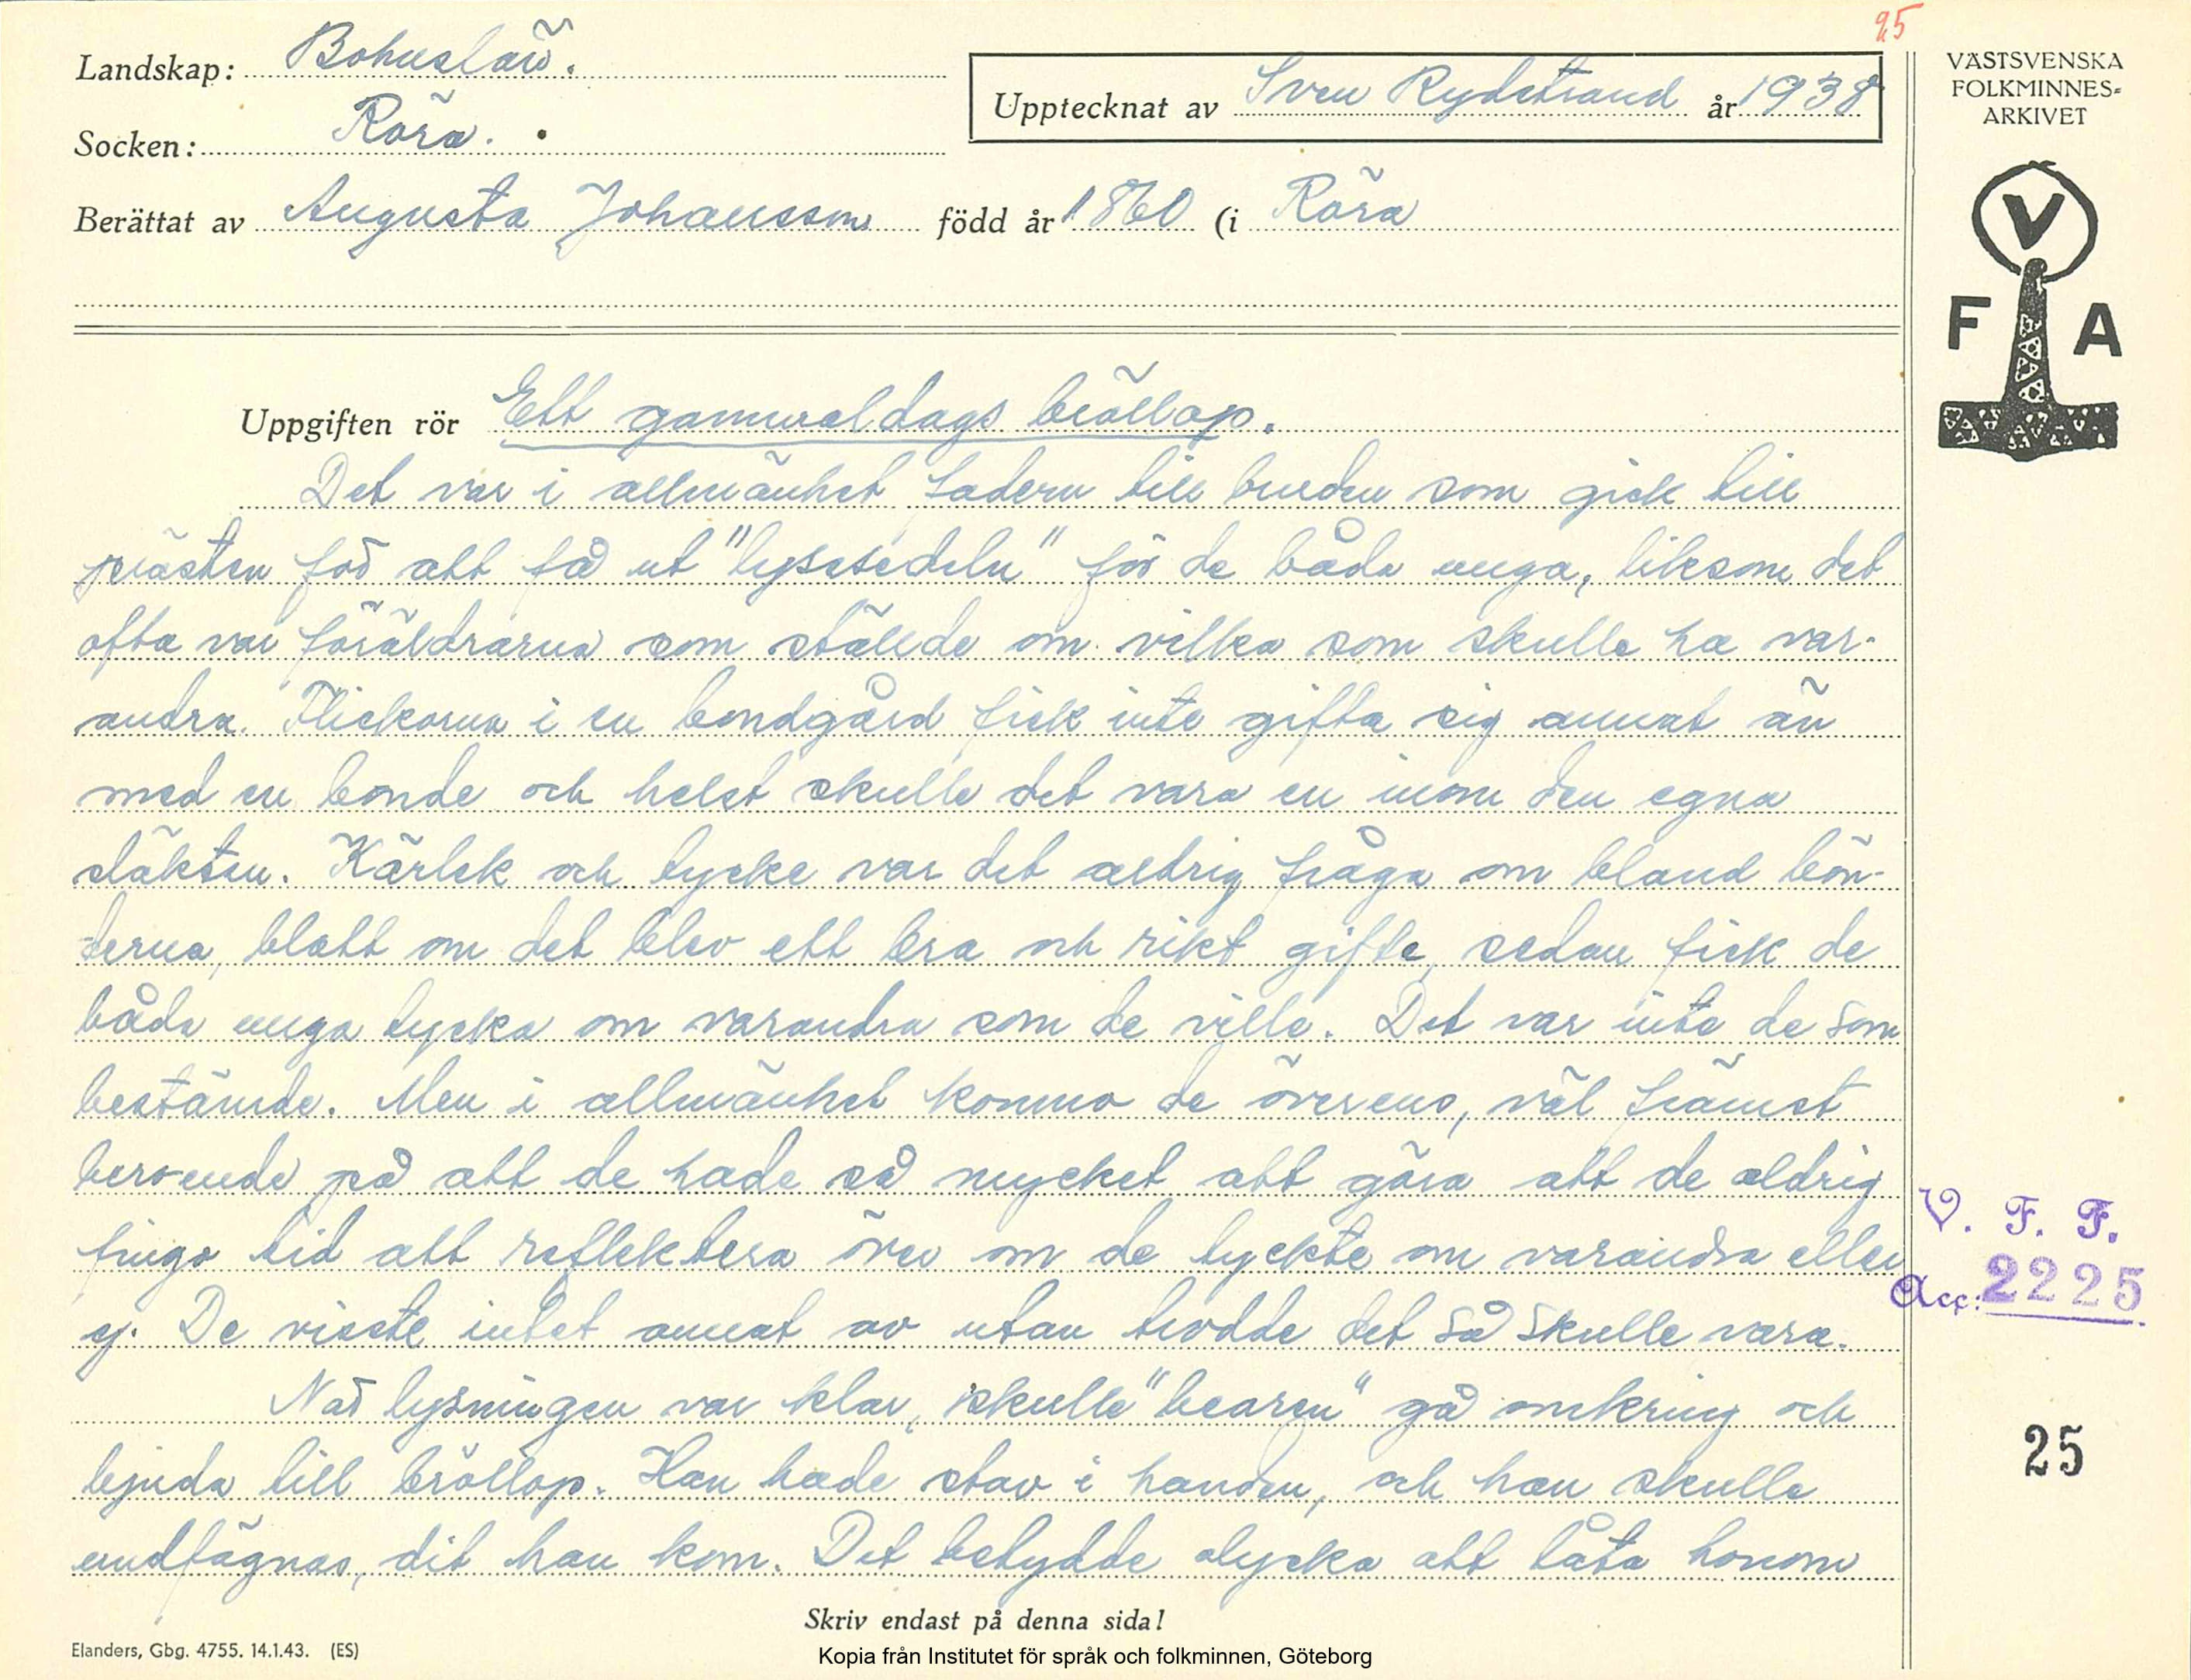 25
Landskap: Bohuslän.
Socken: Röra.
Upptecknat av Sven Rydstrand år 1938
Berättat av Augusta Johansson född år 1860 (i Röra
VÄSTSVENSKA
FOLKMINNES=
ARKIVET
V
F A
Uppgiften rör Ett gammaldags bröllop.
Det var i allmänhet fadern till bruden som gick till
prästen för att få ut "lysesedeln" för de båda unga, liksom det
ofta var föräldrarna som ställde om vilka som skulle ha var-
andra. Flickorna i en bondgård fick inte gifta sig annat än
med en bonde och helst skulle det vara en inom den egna
släkten. Kärlek och tycke var det aldrig fråga om bland bön-
derna, blott om det blev ett bra och rikt gifte, sedan fick de
båda unga tycka om varandra som de ville. Det var inte de som
bestämde. Men i allmänhet kommo de överens, väl främst
beroende på att de hade så mycket att göra att de aldrig
fingo tid att reflektera över om de tyckte om varandra eller
ej. De visste intet annat av utan trodde det så skulle vara.
När lysningen var klar, skulle "bearen" gå omkring och
bjuda till bröllop. Han hade stav i handen, och han skulle
undfägnas, dit han kom. Det betydde olycka att låta honom
V. F. F.
Acc: 2225
25
Skriv endast på denna sida!
Elanders, Gbg. 4755. 14.1.43. (ES)
Kopia från Institutet för språk och folkminnen, Göteborg